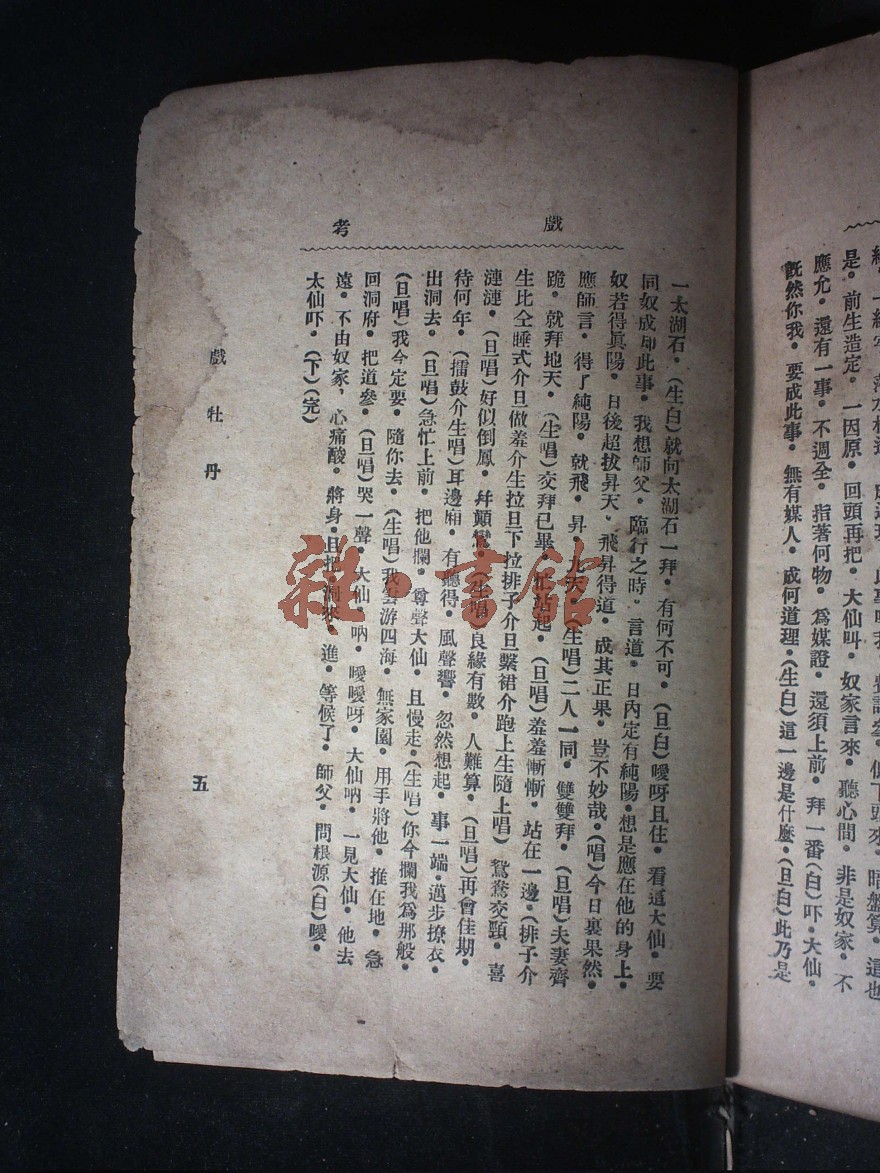 經
是。前生造定。一因原。回頭再把。大仙叫。奴家言來。聽心間。非是奴家。不
應允。還有一事。不週全。指著何物。爲媒證。還須上前。拜一番(白)吓。大仙。
旣然你我。要成此事。無有媒人。成何道理。(生白)這一邊是什麼。(旦白)此乃是
戲考
一太湖石。(生白)就向太湖石一拜。有何不可。(旦白)噯呀且住。看這大仙。要
同奴成却此事。我想師父。臨行之時。言道。日內定有純陽。想是應在他的身上。
奴若得眞陽。日後超拔昇天。飛昇得道。成其正果。豈不妙哉。(唱)今日裏果然。
應師言。得了純陽。就飛。昇。九天。(生唱)二人一同。雙雙拜。(旦唱)夫妻齊
跪。就拜地天。(生唱)交拜已畢。忙站起。(旦唱)羞羞慚慚。站在一邊。(排子介
生比仝睡式介旦做羞介生拉旦下拉排子介旦繫裙介跑上生隨上唱)鴛鴦交頸。喜
漣漣。(旦唱)好似倒鳳。幷顛鸞。(生唱)良緣有數。人難算。(旦唱)再會佳期。
待何年。(擂鼓介生唱)耳邊廂。有聽得。風聲響。忽然想起。事一端。邁步撩衣。
出洞去。(旦唱)急忙上前。把他攔。尊聲大仙。且慢走。(生唱)你今攔我爲那般。
(旦唱)我今定要。隨你去。(生唱)我雲游四海。無家園。用手將他。推在地。急
回洞府。把道參。(旦唱)哭一聲。大仙。吶。噯噯呀。大仙吶。一見大仙。他去
遠。不由奴家。心痛酸。將身。且把。洞來。進。等候了。師父。問根源(白)噯。
太仙吓。(下)(完)
戲牡丹
五
雜·書館